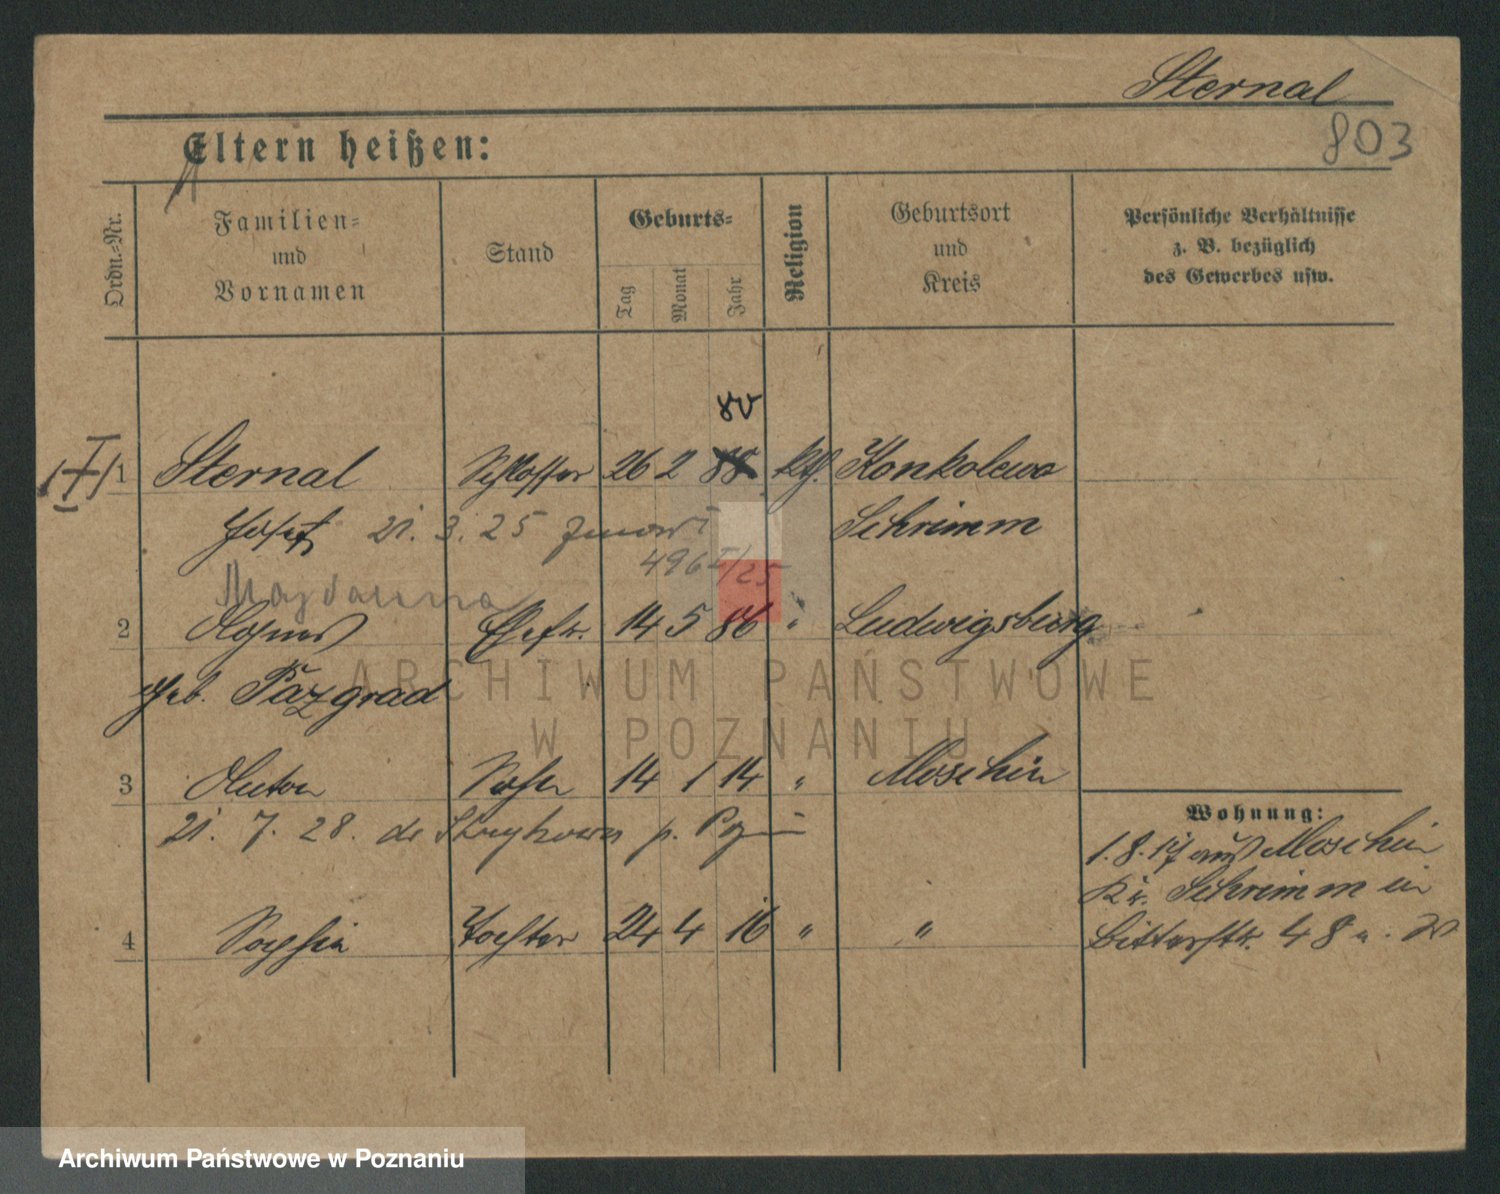 Sternal
803
Eltern heißen:
Ordn.-Nr.
Familien-
und
Vornamen
Stand
Geburts-
Tag
Monat
Jahr
Religion
Geburtsort
und
Kreis
Persönliche Verhältnisse
z. B. bezüglich
des Gewerbes usw.
80
1 Sternal Schlosser 26 2 88 kth. Konkolewo
Josef 21. 3. 25 zmarł Schrimm
496 I/25
Magdalena
2 Agnes Ehefr. 14 5 86 " Ludwigsburg
geb. Pazgrad
ARCHIWUM PAŃSTWOWE
W POZNANIU
3 Anton Sohn 14 1 14 " Moschin
21. 7. 28. do p.
Wohnung:
1. 8. 17 aus Moschin
Kr. Schrimm in
Bitterstr. 48
4 Sophia Tochter 24 4 16 " "
Archiwum Państwowe w Poznaniu